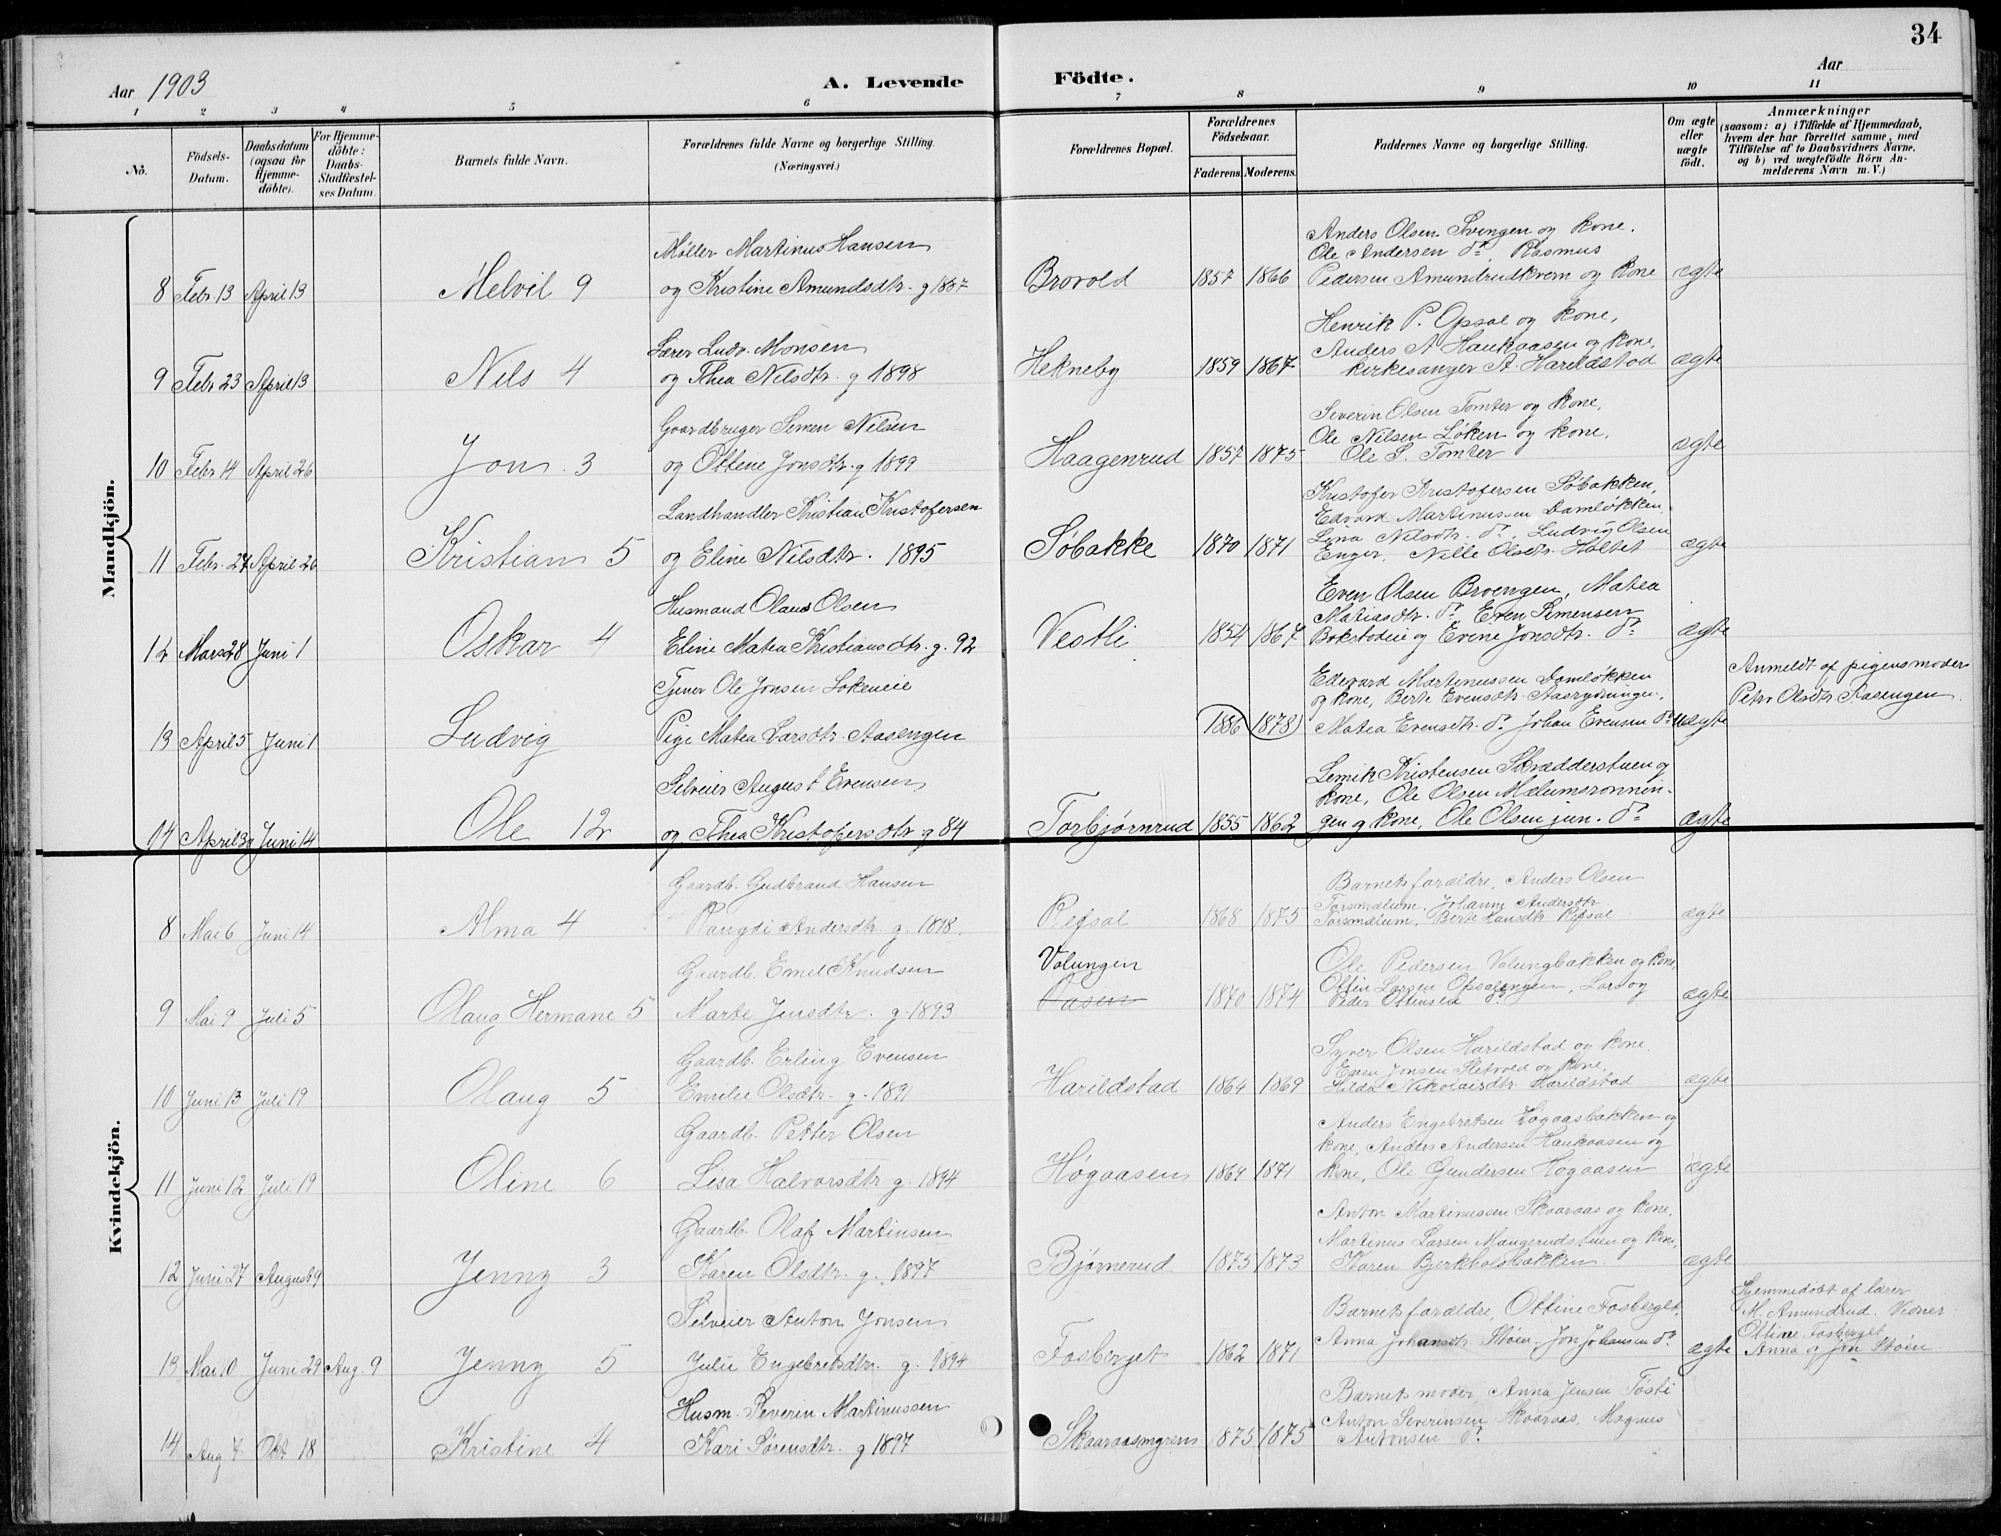 34
Aar 1903
A. Levende Födte.
Aar
1 2 3 4 5 6 7 8 9 10 11
No.
Födsels-Datum.
Daabsdatum (ogsaa för Hjemme-döbte).
For Hjemme-döbte: Daabs-Stadfæstel-ses Datum.
Barnets fulde Navn.
Forældrenes fulde Navne og borgerlige Stilling. (Næringsvei.)
Forældrenes Bopæl.
Forældrenes Födselsaar.
Faderens. Moderens.
Faddernes Navne og borgerlige Stilling.
Om ægte eller uægte födt.
Anmærkninger
(saasom: a) i Tilfælde af Hjemmedaab, hvem der har forrettet samme, med Tilföielse af to Daabsvidners Navne, og b) ved uægtefödte Börn An-melderens Navn m. V.)
Mandkjön.
Møller Martinus Hansen
Anders Olsen Svingen og kone.
Ole Andersen do, Rasmus
8 Febr. 13 April 13 Melvil 9 og Kristine Amundsdtr. g 1887 Brovold 1857 1866 Pedersen Amundrudkvern og kone ægte
Henrik P. Opsal og kone,
Lærer Ludv. Monsen
Anders A Haukaasen og kone,
9 Febr 23 April 13 Nils 4 og Thea Nilsdtr. g 1898 Hekneby 1859 1867 kirkesanger A. Harildstad ægte
Gaardbruger Simen Nilsen
Severin Olsen Tomter og kone,
Ole Nilsen Løken og kone,
10 Febr 14 April 26 Jon. 3 og Ottene Jonsdtr. g 1899 Haagenrud 1857 1875 Ole S. Tomter ægte
Landhandler Kristian Kristofersen
Kristofer Kristofersen Søbakken,
Edvard Martinussen Damløkken
Lina Nilsdtr. do, Ludvig Olsen
11 Febr. 27 April 26 Kristian 5 og Eline Nilsdtr. 1895 Søbakke 1870 1871 Enger, Nille Olsdtr. Holtet ægte
Husmand Olaus Olsen
Even Olsen Broengen, Matea
Matiasdtr. do. Even Simensen
12 Mars 28 Juni 1 Oskar 4 Eline Matea Kristiansdtr. g. 92 Vestli 1854 1867 Bakstadeie og Evine Jonsdtr. do ægte
Tjener Ole Jonsen Løkeneie
Edevard Martinussen Damløkken
og kone, Berte Evensdtr. Aasrydningen,
Anmeldt af pigens moder
Petr. Olsdtr. Aasengen
13 April 5 Juni 1 Ludvig Pige Matea Larsdtr. Aasengen 1886 1878 Matea Evensdtr. do. Johan Evensen do uægte
Selveier August Evensen
Lemik Kristensen Skrædderstuen og
kone, Ole Olsen Mælumsrønnin-
14 April 30 Juni 14 Ole 12 og Thea Kristofersdtr g 84 Torbjørnrud 1855 1862 gen og kone, Ole Olsen jun. do ægte
Kvindekjön.
Gaardb. Gudbrand Hansen
Barnets forældre, Anders Olsen
Torsmælum, Johanne Andersdtr
8 Mai 6 Juni 14 Alma 4 Rangdi Andersdtr. g. 1898. Refsal 1868 1875 Torsmælum, Berte Hansdtr. Refsal ægte
Gaardb. Emil Knudsen
Volungen
Ole Pedersen Volungbakken og kone,
Ottin Larsen Opsalengen, Lars og
9 Mai 9 Juli 5 Olaug Hermane 5 Marte Jensdtr. g. 1893 Aasen 1870 1874 Peder Ottinsen do ægte
Gaardb. Erling Evensen
Syver Olsen Harildstad og kone.
Even Jonsen Sletvold og kone,
10 Juni 13 Juli 19 Olaug 5 Emilie Olsdtr. g. 1891 Harildstad 1864 1869 Hilda Nikolaisdtr. Harildstad ægte
Gaardb. Petter Olsen
Anders Engebretsen Høgaasbakken og
kone, Anders Andersen Haukaasen og
11 Juni 12 Juli 19 Oline 6 Lisa Halvorsdtr g. 1894 Høgaasen 1869 1871 kone, Ole Gundersen Høgaasen ægte
Gaardb. Olaf Martinsen
Anton Martinussen Skaaraas og kone,
Martinus Larsen Mangerudstuen og kone,
12 Juni 27 August 9 Jenny 3 Karen Olsdtr. g. 1897 Bjørnerud 1875 1873 Karen Bjerkholsbakken. ægte
Selveier Anton Jonsen
Barnets forældre, Ottine Fosberget,
Hjemmedøbt af lærer
M. Amundrud. Vidner
Ottine Fosberget
13 Mai 10 Juni 29 Aug. 9 Jenny 5 Julie Engebretsdtr. g. 1894 Fosberget 1862 1871 Anna Johansdtr Støen, Jon Johansen do. ægte Anna og Jon Støen
Husm. Severin Martinussen
Barnets moder, Anna Jensen Tøsti
Anton Severinsen Skaaraas, Magnus
14 Aug 7 Okt 18 Kristine 4 Kari Sørensdtr. g 1897 Skaaraasmyren 1875 1875 Antonsen do